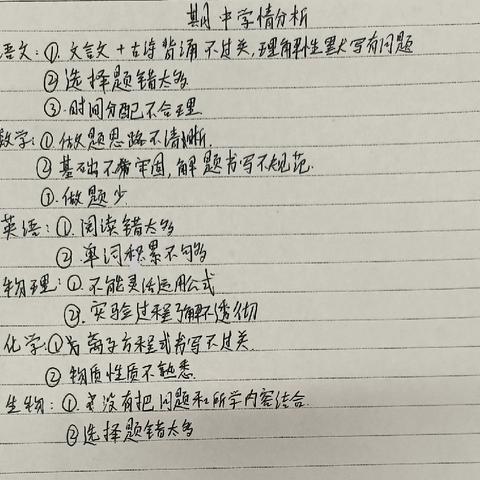 期中学情分析
语文:①.文言文+古诗背诵不过关,理解性默写有问题
②选择题错太多
③.时间分配不合理
数学:①.做题思路不清晰.
②基础不牢固,解题书写不规范.
③.做题少.
英语:①.阅读错太多
②.单词积累不够多
物理:①.不能灵活运用公式
②.实验过程了解不透彻
化学:①离子方程式书写不过关.
②物质性质不熟悉.
生物:①.没有把问题和所学内容结合.
②选择题错太多